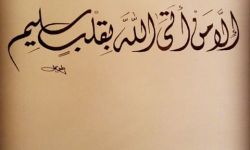 إلا من أتى الله بقلب سليم